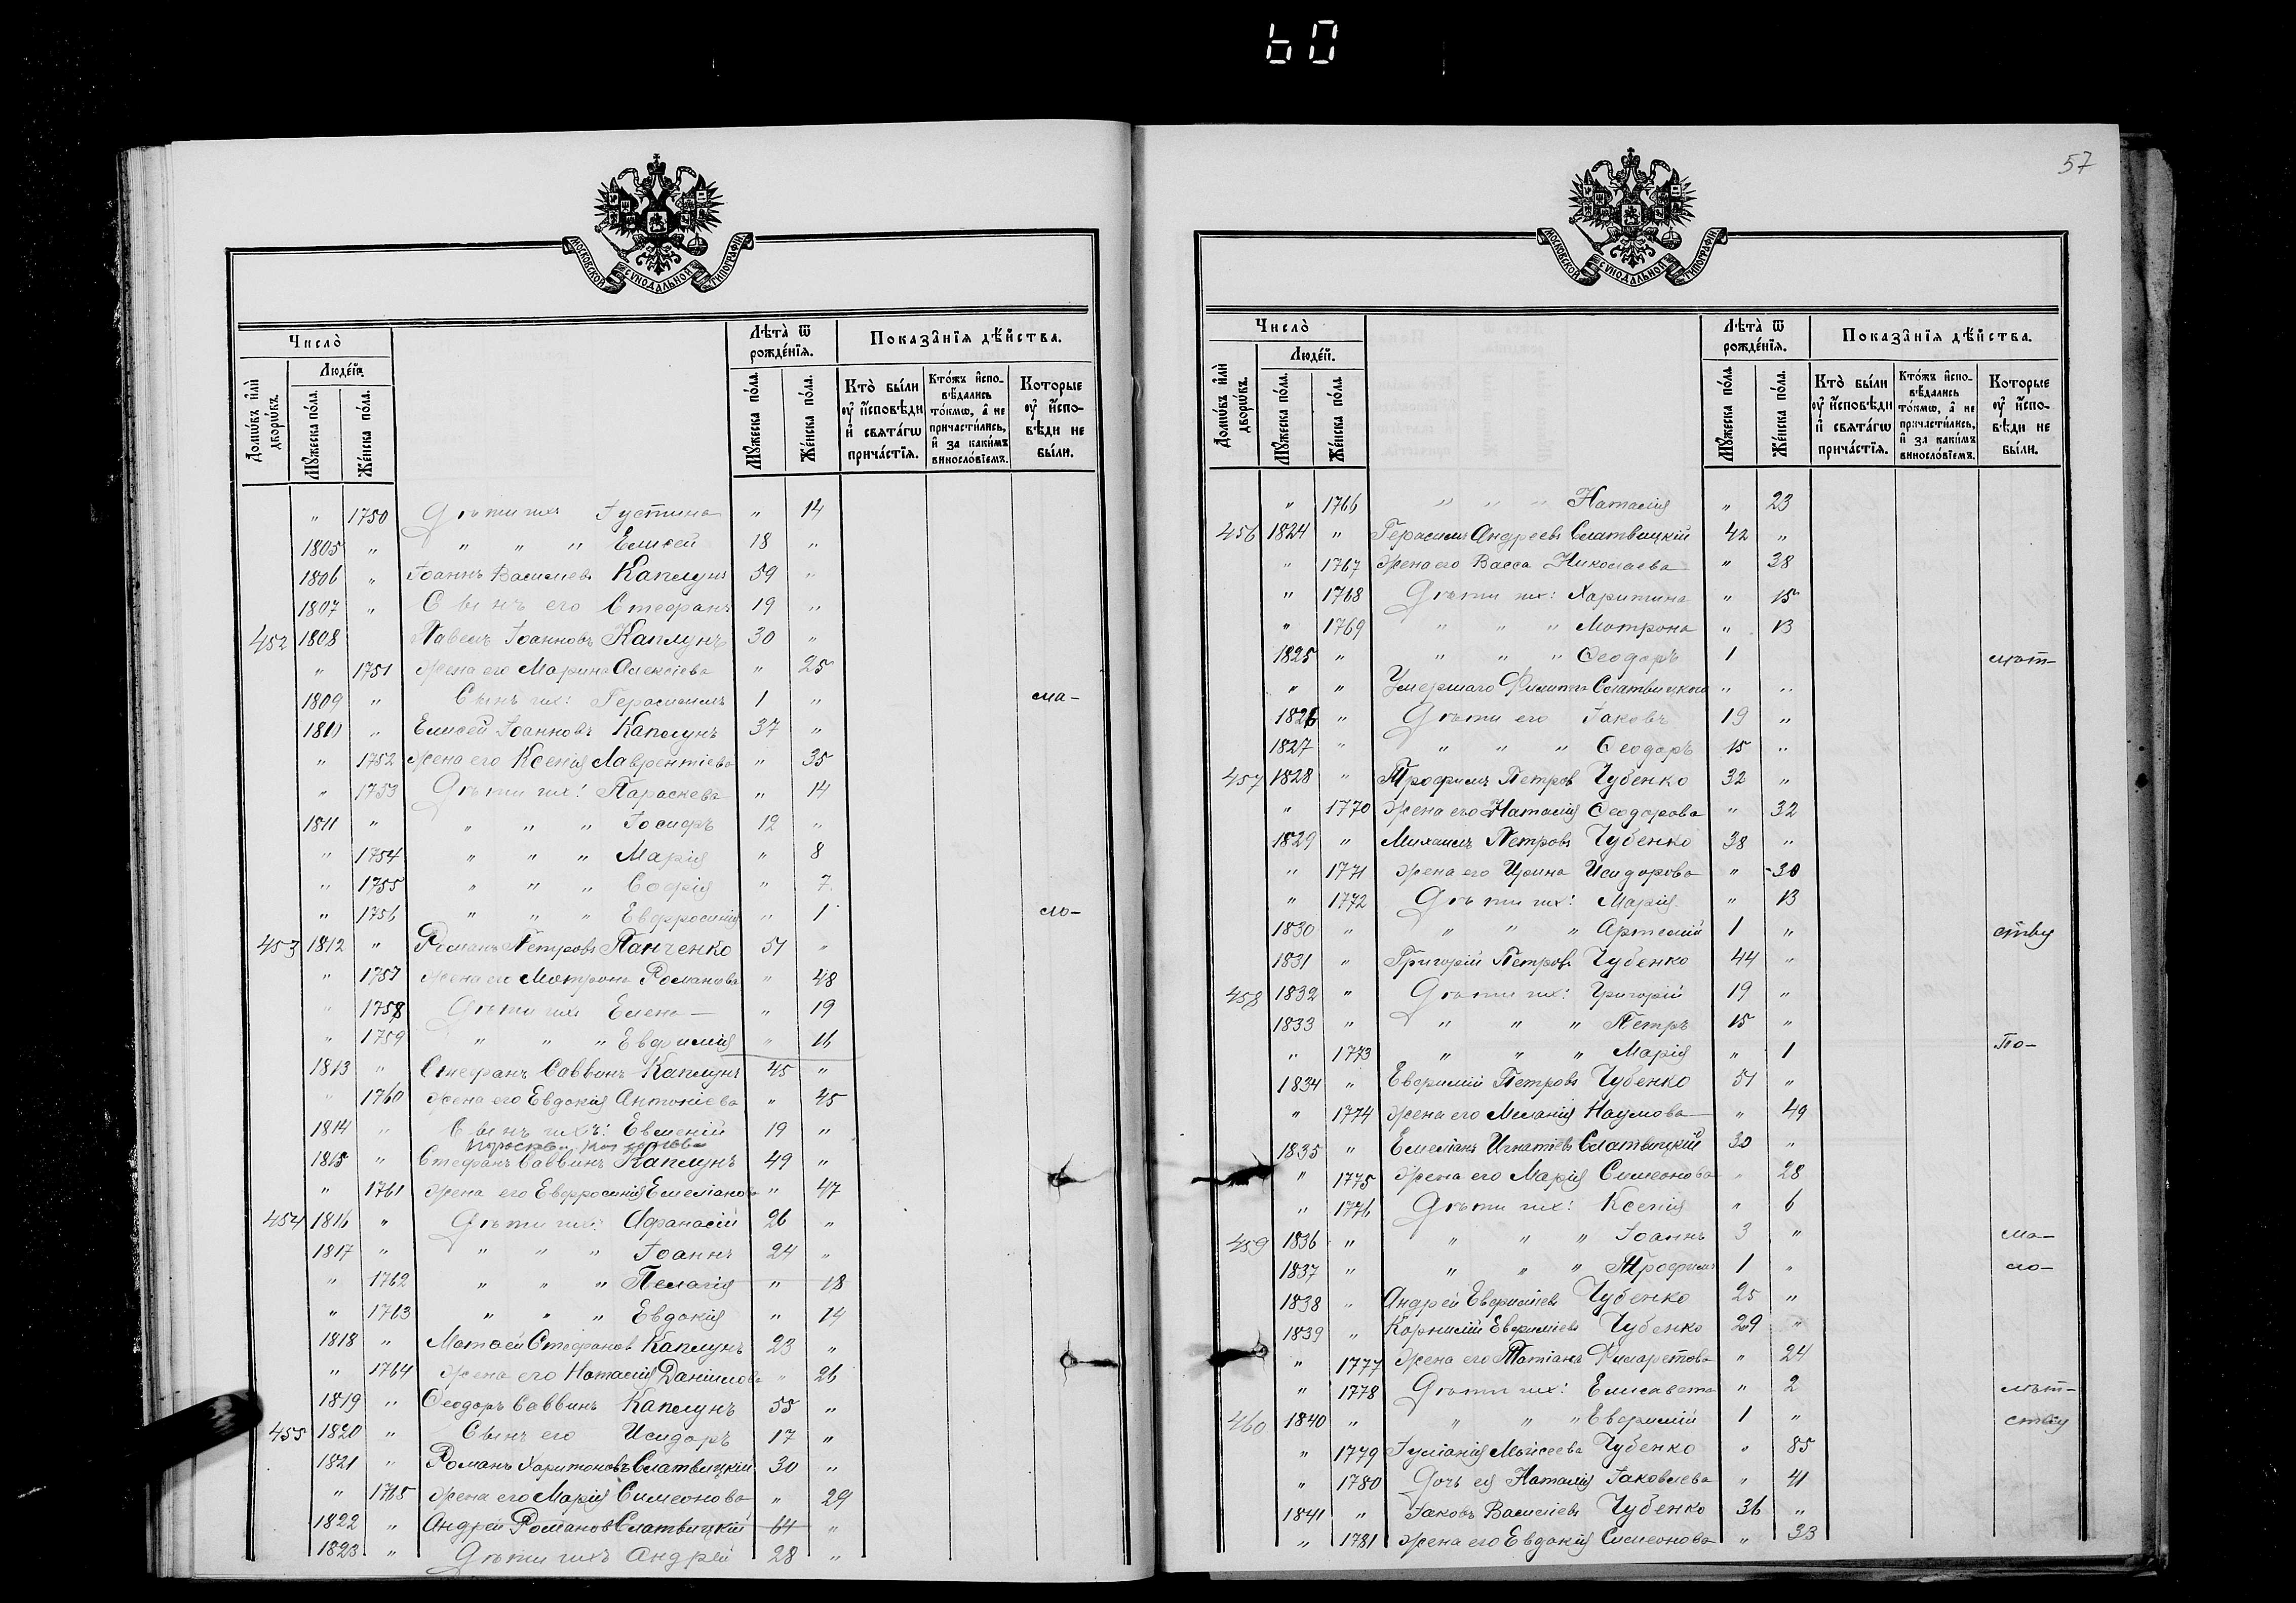 60
57
МОСКОВСКОЙ СѴНОДАЛЬНОЙ ТИПОГРАФІИ
Число̀
Людей.
Домѡ́въ и҆лѝ дворѡ́въ.
Мꙋ́жеска по́ла.
Же́нска по́ла.
Лѣта̀ ѿ рожде́нїѧ.
Мꙋ́жеска по́ла.
Же́нска по́ла.
Показа̑нїѧ дѣ́йства.
Кто̀ бы́ли ᲂу҆ и҆сповѣди и҆ свѧта́гѡ прича́стїѧ.
Кто́жъ и҆спо- вѣдались то́кмѡ, а҆ не причасти́лись, и҆ за каки́мъ винослові́емъ.
Которые ᲂу҆ и҆спо- вѣди не бы́ли.
" 1750 Дѣти ихъ Іустина " 14
1805 " " " " Елисей 18 "
1806 " Іоаннъ Василіевъ Каплунъ 59 "
1807 " Сынъ его Стефанъ 19 "
452 1808 Павелъ Іоанновъ Каплунъ 30 "
" 1751 Жена его Марина Алексіева " 25
1809 " Сынъ ихъ: Герасимъ 1 " ма-
1810 " Елисей Іоанновъ Каплунъ 37 "
" 1752 Жена его Ксенія Лаврентіева " 35
" 1753 Дѣти ихъ: Параскева " 14
1811 " " " " Іосифъ 12 "
" 1754 " " " Марія " 8
" 1755 " " " Софія " 7
" 1756 " " " Евфросинія " 1 ло-
453 1812 " Романъ Петровъ Панченко 51 "
" 1757 Жена его Мотрона Романова " 48
" 1758 Дѣти ихъ Елена " 19
" 1759 " " " Евфимія " 16
1813 " Стефанъ Саввинъ Каплунъ 45 "
" 1760 Жена его Евдокія Антоніева " 45
1814 " Сынъ ихъ: Евменій 19 "
1815 " Стефанъ Саввинъ Каплунъ 49 "
" 1761 Жена его Евфросинія Емеліанова " 47
454 1816 " Дѣти ихъ: Афанасій 26 "
1817 " " " " Іоаннъ 24 "
" 1762 " " " Пелагія " 18
" 1763 " " " Евдокія " 14
1818 " Матѳей Стефановъ Каплунъ 23 "
" 1764 Жена его Наталія Даніилова " 26
1819 " Ѳеодоръ Саввинъ Каплунъ 55 "
455 1820 " Сынъ его Исидоръ 17 "
1821 " Романъ Харитоновъ Слатвицкій 30 "
" 1765 Жена его Марія Симеонова " 29
1822 " Андрей Романовъ Слатвицкій 64 "
1823 " Дѣти ихъ Андрей 28 "
Число̀
Людей.
Домѡ́въ и҆лѝ дворѡ́въ.
Мꙋ́жеска по́ла.
Же́нска по́ла.
Лѣта̀ ѿ рожде́нїѧ.
Мꙋ́жеска по́ла.
Же́нска по́ла.
Показа̑нїѧ дѣ́йства.
Кто̀ бы́ли ᲂу҆ и҆сповѣди и҆ свѧта́гѡ прича́стїѧ.
Кто́жъ и҆спо- вѣдались то́кмѡ, а҆ не причасти́лись, и҆ за каки́мъ винослові́емъ.
Которые ᲂу҆ и҆спо- вѣди не бы́ли.
МОСКОВСКОЙ СѴНОДАЛЬНОЙ ТИПОГРАФІИ
" 1766 " " " Наталія " 23
456 1824 " Герасимъ Андреевъ Слатвицкій 42 "
" 1767 Жена его Васса Николаева " 38
" 1768 Дѣти ихъ: Харитина " 15
" 1769 " " " Мотрона " 13
1825 " " " " Ѳеодоръ 1 лѣт-
" " Умершаго Филиппа Слатвицкаго " "
1826 " Дѣти его Іаковъ 19 "
1827 " " " " Ѳеодоръ 15 "
457 1828 " Трофимъ Петровъ Чубенко 32 "
" 1770 Жена его Наталія Ѳеодорова " 32
1829 " Михаилъ Петровъ Чубенко 38 "
" 1771 Жена его Ирина Исидорова " 30
" 1772 Дѣти ихъ: Марія " 13
1830 " " " " Артемій 1 " ству
1831 " Григорій Петровъ Чубенко 44 "
458 1832 " Дѣти ихъ: Григорій 19 "
1833 " " " " Петръ 15 "
" 1773 " " " Марія " 1 По-
1834 " Евфимій Петровъ Чубенко 51 "
" 1774 Жена его Меланія Наумова " 49
1835 " Емеліанъ Игнатіевъ Слатвицкій 30 "
" 1775 Жена его Марія Симеонова " 28
" 1776 Дѣти ихъ: Ксенія " 6
459 1836 " " " " Іоаннъ 3 " ма-
1837 " " " " Трофимъ 1 " ло-
1838 " Андрей Евфиміевъ Чубенко 25 "
1839 " Корнилій Евфиміевъ Чубенко 29 "
" 1777 Жена его Татіана Филаретова " 24
" 1778 Дѣти ихъ: Елисавета " 2 лѣт-
460 1840 " " " " Евфимій 1 " ству
" 1779 Іуліанія Моѵсеева Чубенко " 85
" 1780 Дочь ея Наталія Іаковлева " 41
1841 " Іаковъ Василіевъ Чубенко 36 "
" 1781 Жена его Евдокія Симеонова " 33